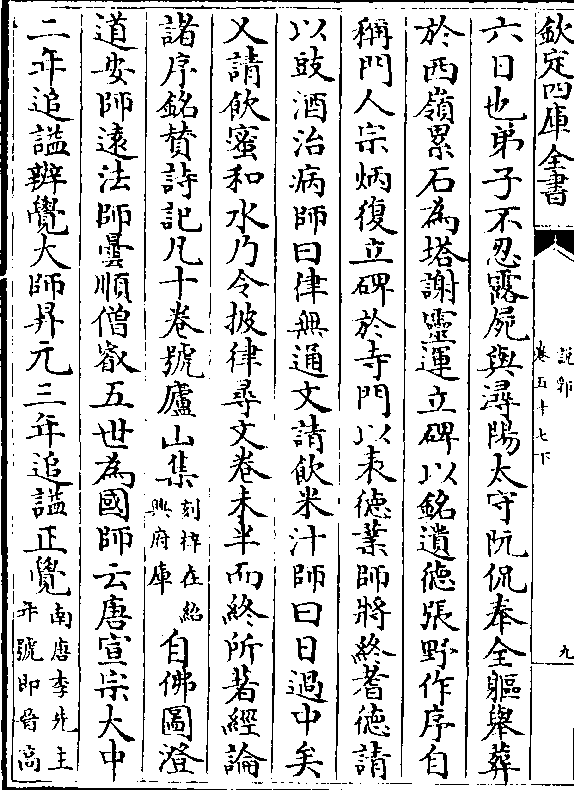 欽定四庫全書
說郛
卷五十七下
九
六日也弟子不忍露屍與潯陽太守阮侃奉全軀舉葬
於西嶺累石為塔謝靈運立碑以銘遺德張野作序自
稱門人宗炳復立碑於寺門以表德業師將終耆德請
以豉酒治病師曰律無通文請飲米汁師曰日過中矣
又請飲蜜和水乃令披律尋文卷未半而終所著經論
諸序銘贊詩記凡十卷號廬山集刻梓在紹興府庫自佛圖澄
道安師遠法師曇順僧叡五世為國師云唐宣宗大中
二年追諡辨覺大師昇元三年追諡正覺南唐李先主年號即晉高